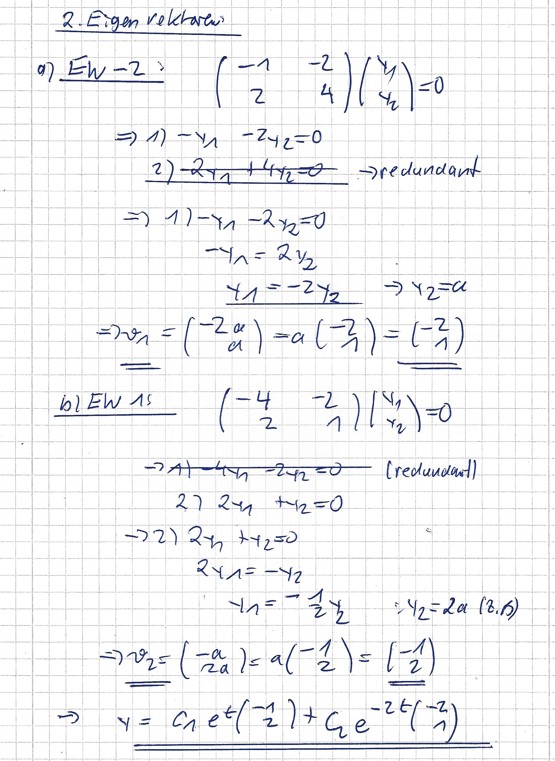 2. Eigenvektoren:
a) EW -2: (-1 -2 / 2 4)(y1 / y2) = 0
=> 1) -y1 -2y2=0
2) -2y1 +4y2=0 → redundant
=> 1) -y1 -2y2=0
-y1 = 2y2
y1 = -2y2 → y2=a
=> v1 = (-2a / a) = a(-2 / 1) = (-2 / 1)
b) EW 1: (-4 -2 / 2 1)(y1 / y2) = 0
→ 1) -4y1 -2y2=0 (redundant)
2) 2y1 +y2=0
→ 2) 2y1 +y2=0
2y1 = -y2
y1 = -1/2 y2 : y2=2a (z.B)
=> v2 = (-a / 2a) = a(-1 / 2) = (-1 / 2)
→ y = C1 e^t(-1 / 2) + C2 e^-2t(-2 / 1)